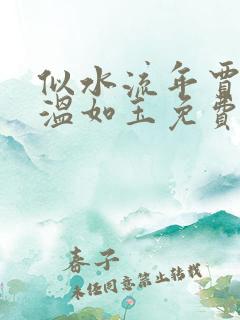 似水流年贾
温如玉免费
春子
未经同意禁止转载